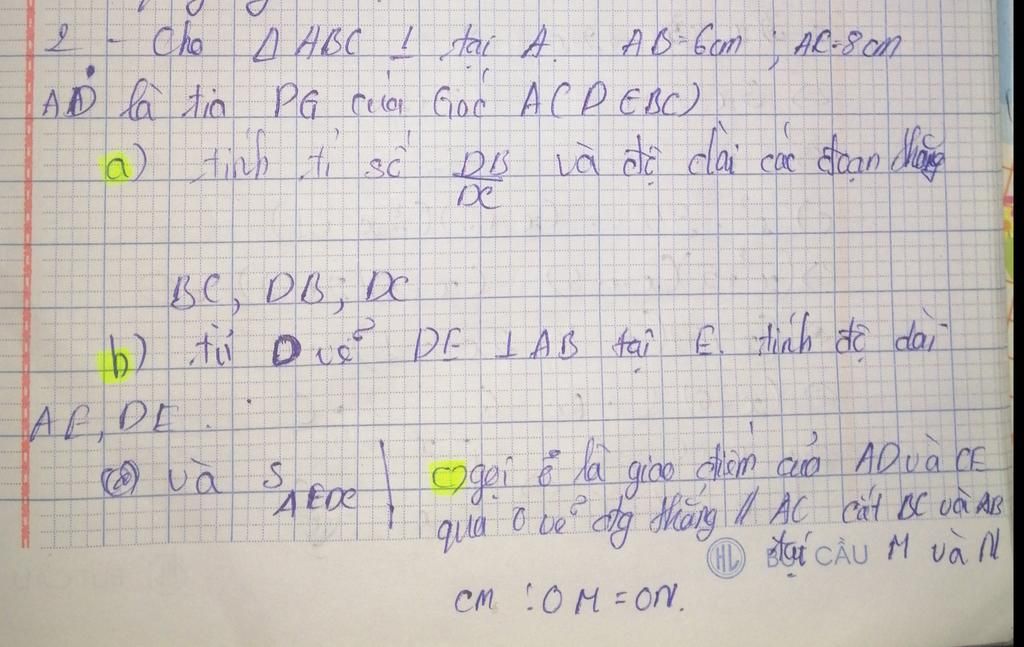 2 - Cho Δ ABC ⊥ tại A. AB=6cm ; AC=8cm
AD là tia PG của Góc A(D∈BC)
a) tính tỉ số DB/DC và độ dài các đoạn thẳng
BC, DB; DC
b) từ D vẽ DE ⊥AB tại E. tính độ dài
AE, DE.
và S AEDC
c) gọi O là giao điểm của AD và CE
qua O vẽ đtg thẳng // AC cắt BC và AB
tại M và N
HL BÚT CẦU
cm : OM = ON.